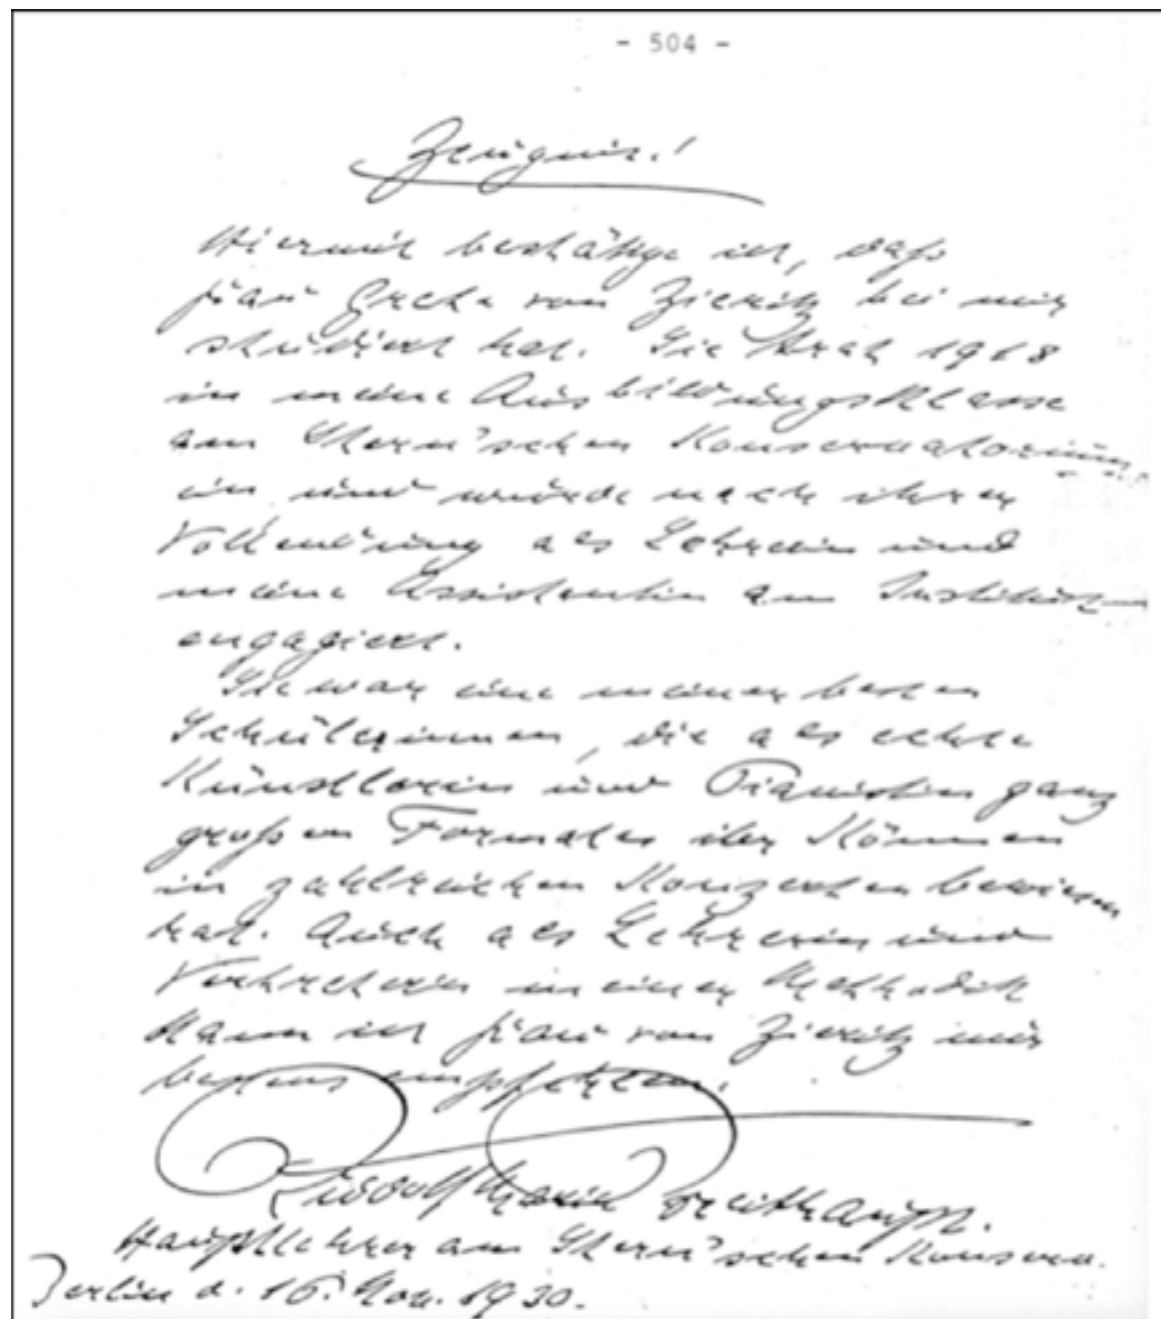 - 504 -
Zeugnis!
Hiermit bestätige ich, daß
Frau Greta von Zieritz bei mir
studiert hat. Sie trat 1918
in meine Ausbildungsklasse
am Stern'schen Konservatorium
ein und wurde nach ihrer
Vollendung als Lehrerin und
meine Assistentin am Institut
engagiert.
Sie war eine meiner besten
Schülerinnen, die als echte
Künstlerin und Pianistin ganz
großen Formates ihr Können
in zahlreichen Konzerten bewiesen
hat. Auch als Lehrerin und
Vertreterin meiner Methodik
kann ich Frau von Zieritz nur
bestens empfehlen.
Rudolf Maria Breithaupt.
Hauptlehrer am Stern'schen Konserv.
Berlin d. 16. Nov. 1930.